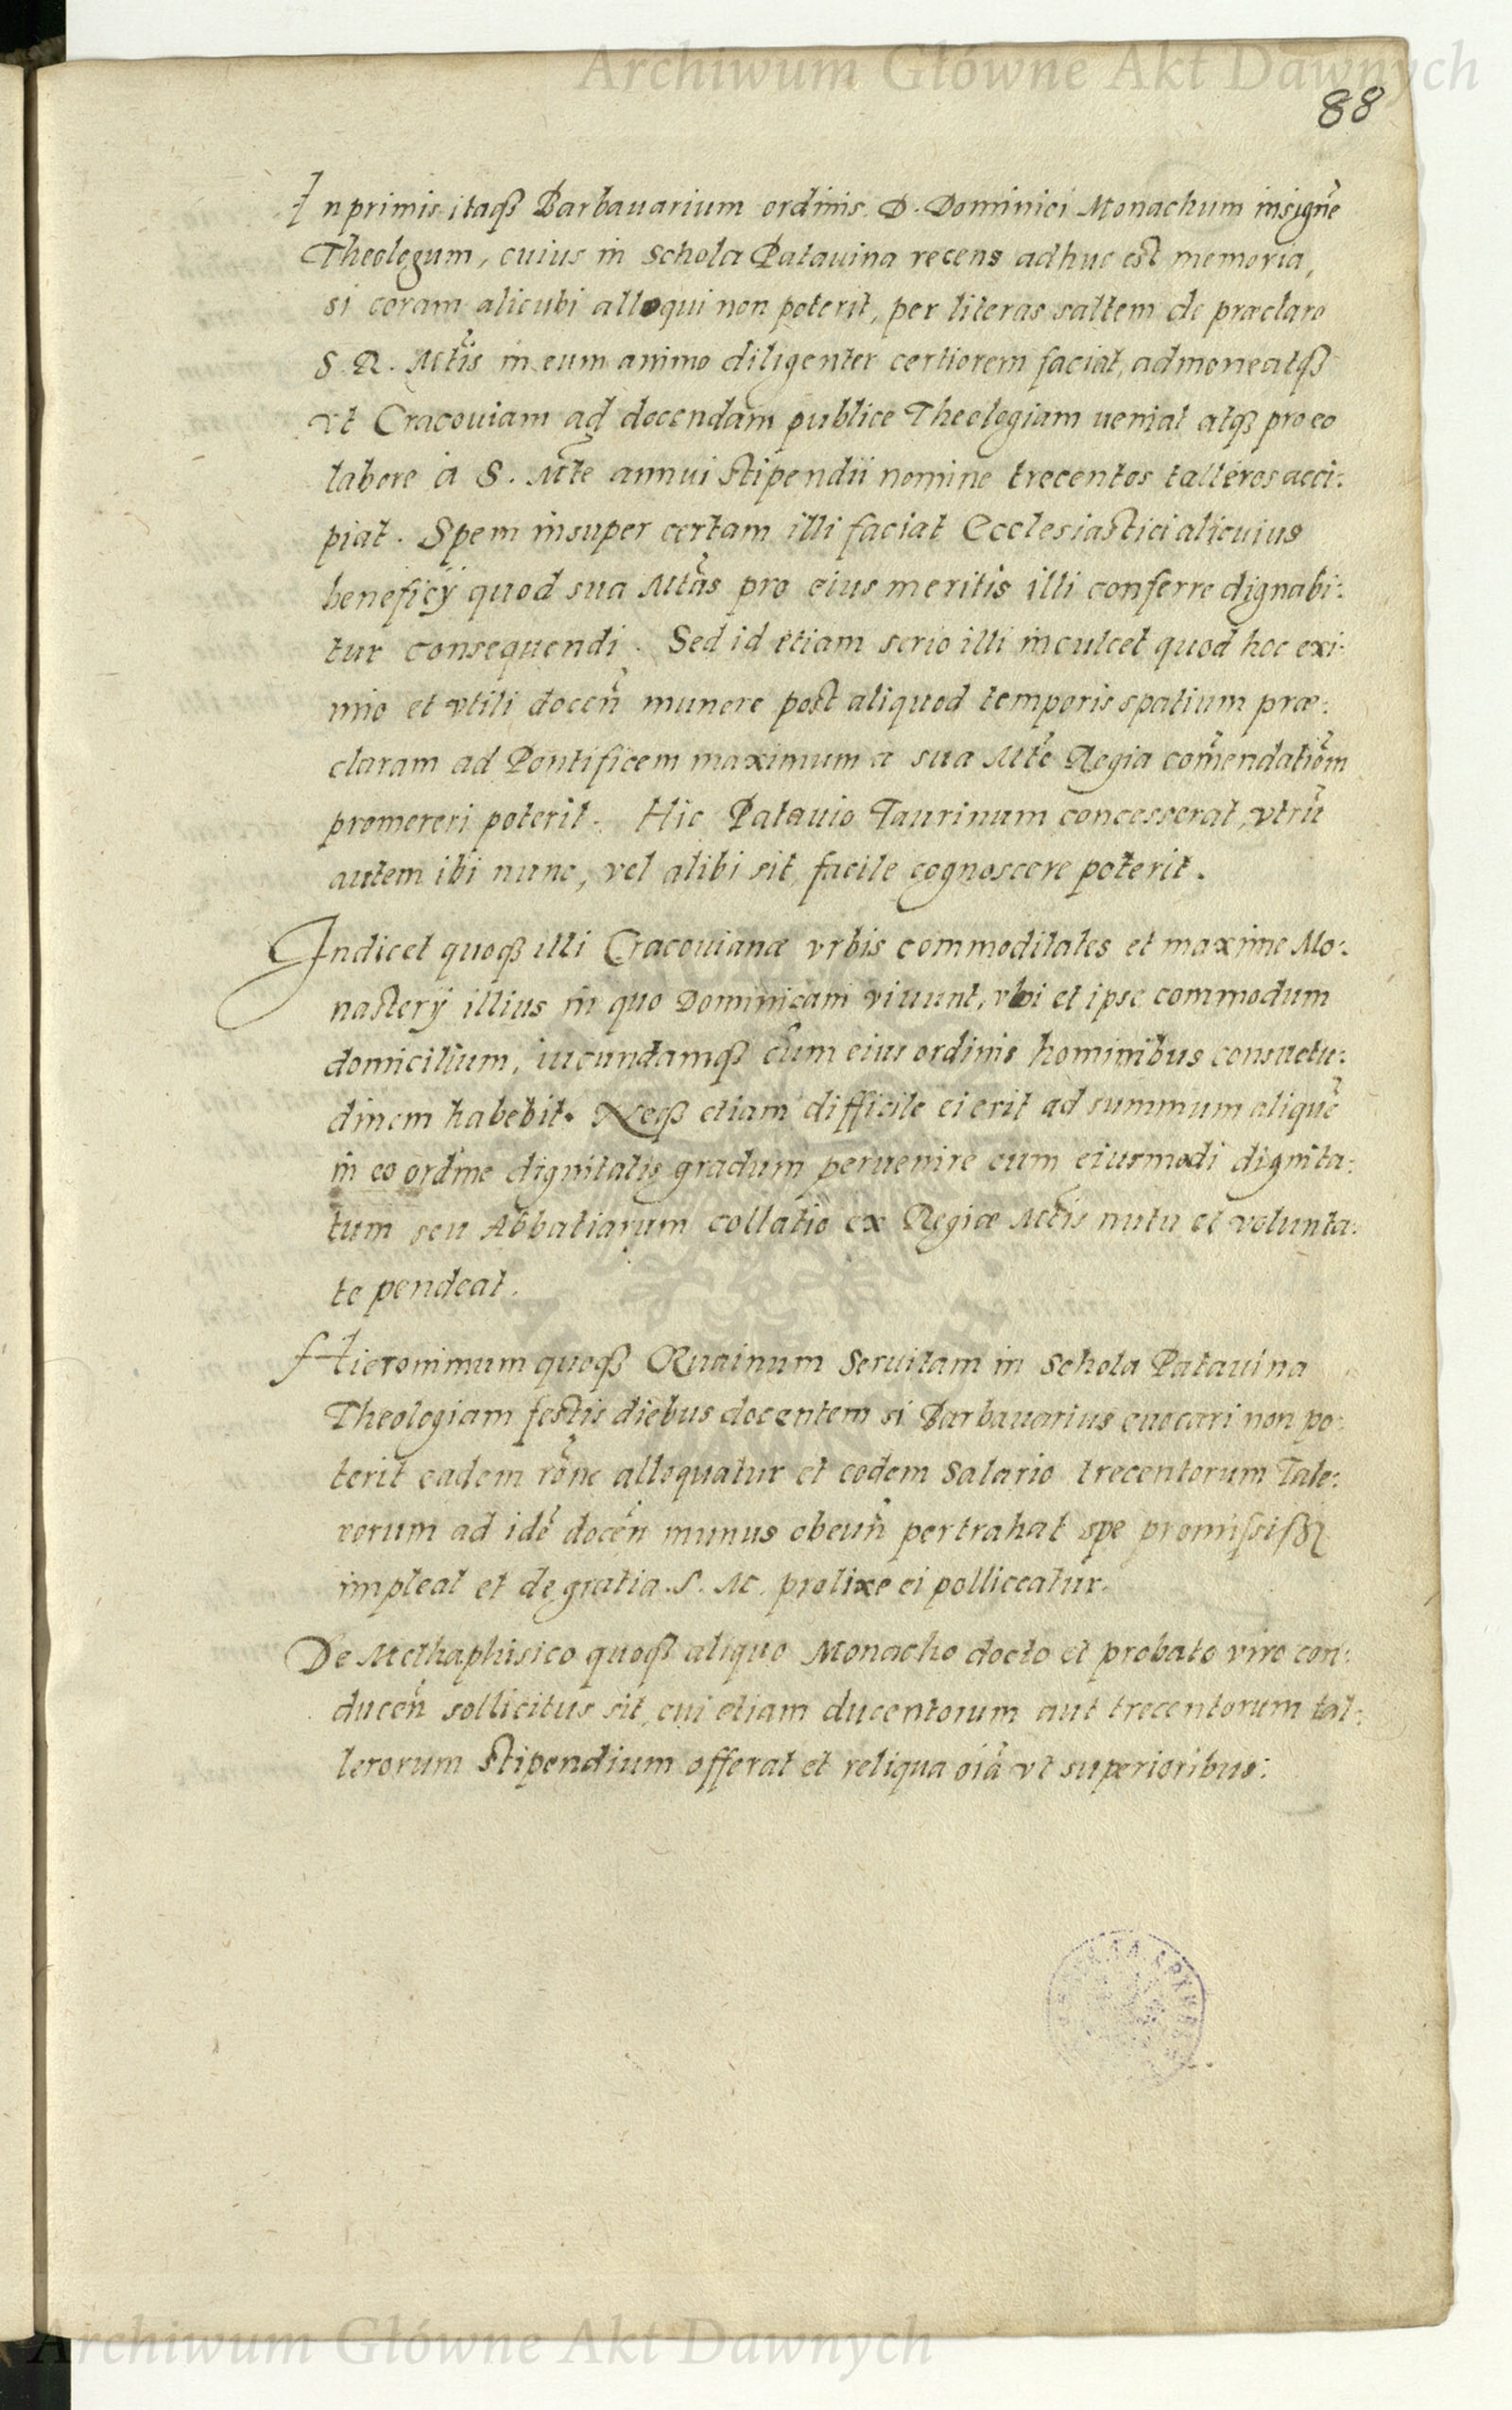 Archiwum Główne Akt Dawnych
88
Inprimis itaqȝ Barbauarium ordinis D. Dominici Monachum insignẽ
Theologum, cuius in Schola Patauina recens adhuc est memoria,
si coram alicubi alloqui non poterit, per literas saltem de præclaro
S. R. Mtis in eum animo diligenter certiorem faciat, admoneatqȝ
vt Cracouiam ad docendam publice Theologiam ueniat atqȝ pro eo
labore à S. Mte annui stipendii nomine trecentos talleros acci:
piat. Spem insuper certam illi faciat Ecclesiastici alicuius
beneficÿ quod sua Mtãs pro eius meritis illi conferre dignabi:
tur consequendi. Sed id etiam serio illi inculcet quod hoc exi:
mio et vtili docen̄ munere post aliquod temporis spatium præ:
claram ad Pontificem maximum a sua Mte Regia com̃endatiõm
promereri poterit. Hic Patauio Taurinum concesserat, vtrũ
autem ibi nunc, vel alibi sit, facile cognoscere poterit.
Indicet quoqȝ illi Cracouianæ vrbis commoditates et maxime Mo:
nasterÿ illius in quo Dominicani viuunt, vbi et ipse commodum
domicilium, iucundamqȝ cum eius ordinis hominibus consuetu:
dinem habebit. Neqȝ etiam difficile ei erit ad summum aliquẽ
in eo ordine dignitatis gradum peruenire cum eiusmodi dignita:
tum seu Abbatiarum collatio ex Regiæ Mtis nutu et volunta:
te pendeat.
Hieronimum quoqȝ Quainum Seruitam in Schola Patauina
Theologiam festis diebus docentem si Barbauarius euocari non po:
terit eadem rõne alloquatur et eodem Salario trecentorum Tale:
rorum ad idẽ docen̄ munus obeun̄ pertrahat spe promissisqȝ
impleat et de gratia S. M. prolixe ei polliceatur.
De Methaphisico quoqȝ aliquo Monacho docto et probato viro con:
ducen̄ sollicitus sit, cui etiam ducentorum aut trecentorum tal:
lerorum stipendium offerat et reliqua oĩa vt superioribus:
Archiwum Główne Akt Dawnych